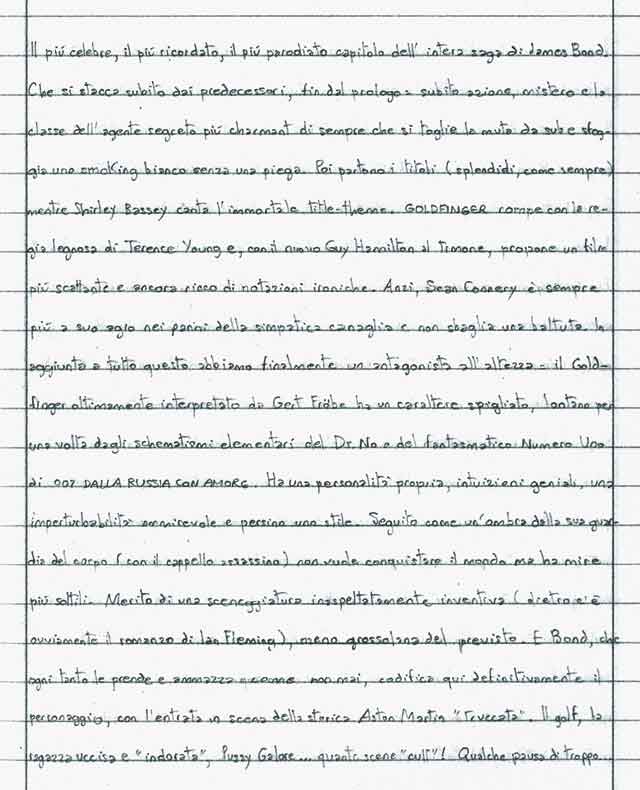 Il più celebre, il più ricordato, il più parodiato capitolo dell' intera saga di James Bond.
Che si stacca subito dai predecessori, fin dal prologo: subito azione, mistero e la
classe dell'agente segreto più charmant di sempre che si toglie la muta da sub e sfog-
gia uno smoking bianco senza una piega. Poi partono i titoli (splendidi, come sempre)
mentre Shirley Bassey canta l'immortale title-theme. GOLDFINGER rompe con la re-
gia legnosa di Terence Young e, con il nuovo Guy Hamilton al timone, propone un film
più scattante e ancora ricco di notazioni ironiche. Anzi, Sean Connery è sempre
più a suo agio nei panni della simpatica canaglia e non sbaglia una battuta. In
aggiunta a tutto questo abbiamo finalmente un antagonista all'altezza: il Gold-
finger ottimamente interpretato da Gert Fröbe ha un carattere spigliato, lontano per
una volta dagli schematismi elementari del Dr. No e del fantasmatico Numero Uno
di 007 DALLA RUSSIA CON AMORE. Ha una personalità propria, intuizioni geniali, una
imperturbabilità ammirevole e persino uno stile. Seguito come un'ombra dalla sua guar-
dia del corpo (con il cappello assassino) non vuole conquistare il mondo ma ha mire
più sottili. Merito di una sceneggiatura inaspettatamente inventiva (dietro c'è
ovviamente il romanzo di Ian Fleming), meno grossolana del previsto. E Bond, che
ogni tanto le prende e ammazza come non mai, codifica qui definitivamente il
personaggio, con l'entrata in scena della storica Aston Martin "truccata". Il golf, la
ragazza uccisa e "indorata", Pussy Galore... quante scene "cult"! Qualche pausa di troppo...